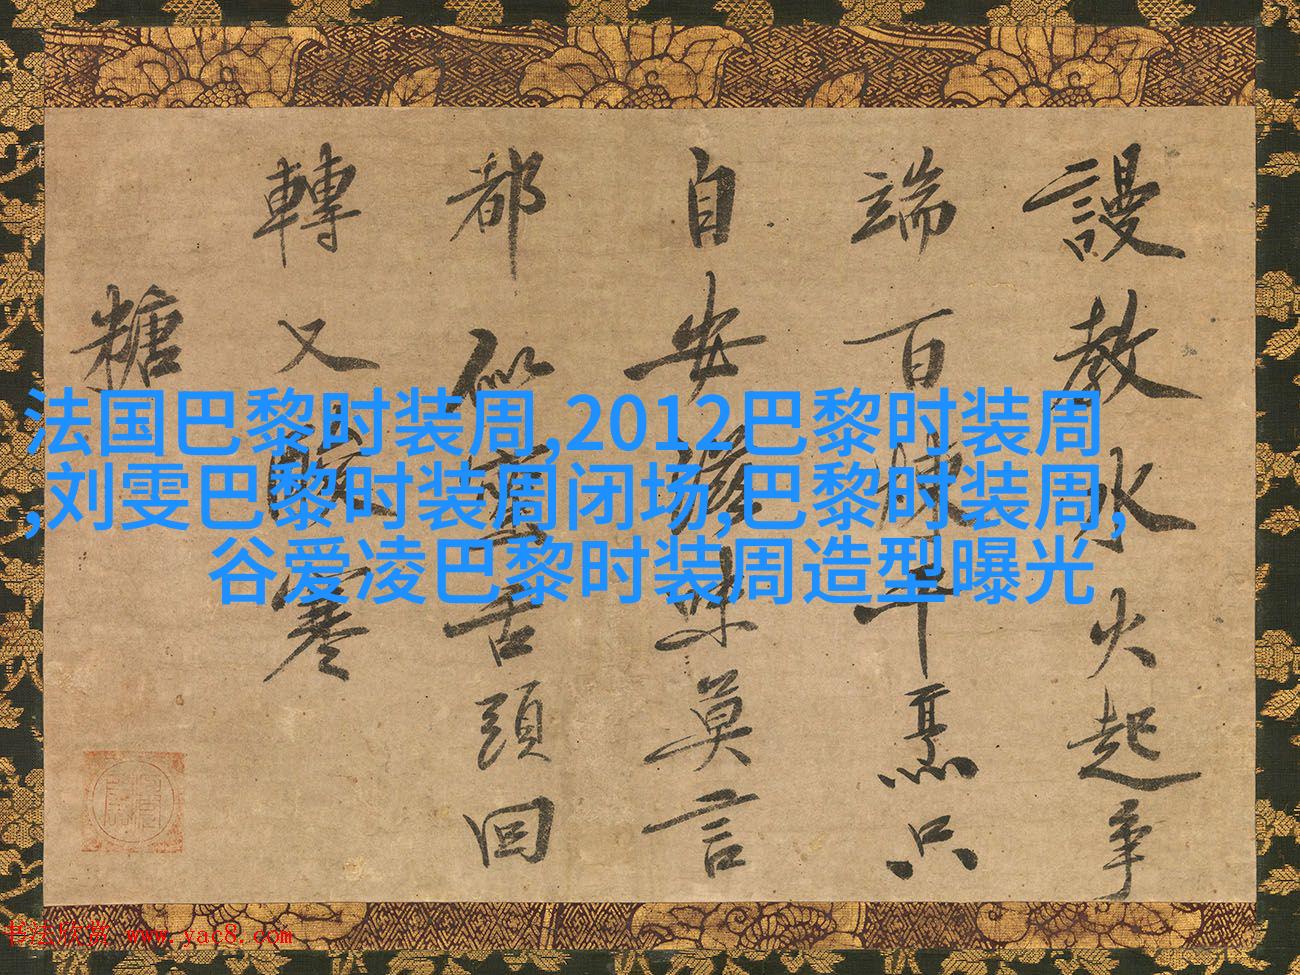 謾教水火起争
端百千只
自安滋味莫言
都似舌頭回
轉又寒
糖
法国巴黎时装周,2012巴黎时装周
,刘雯巴黎时装周闭场,巴黎时装周,
谷爱凌巴黎时装周造型曝光
书法欣赏 www.yac8.com